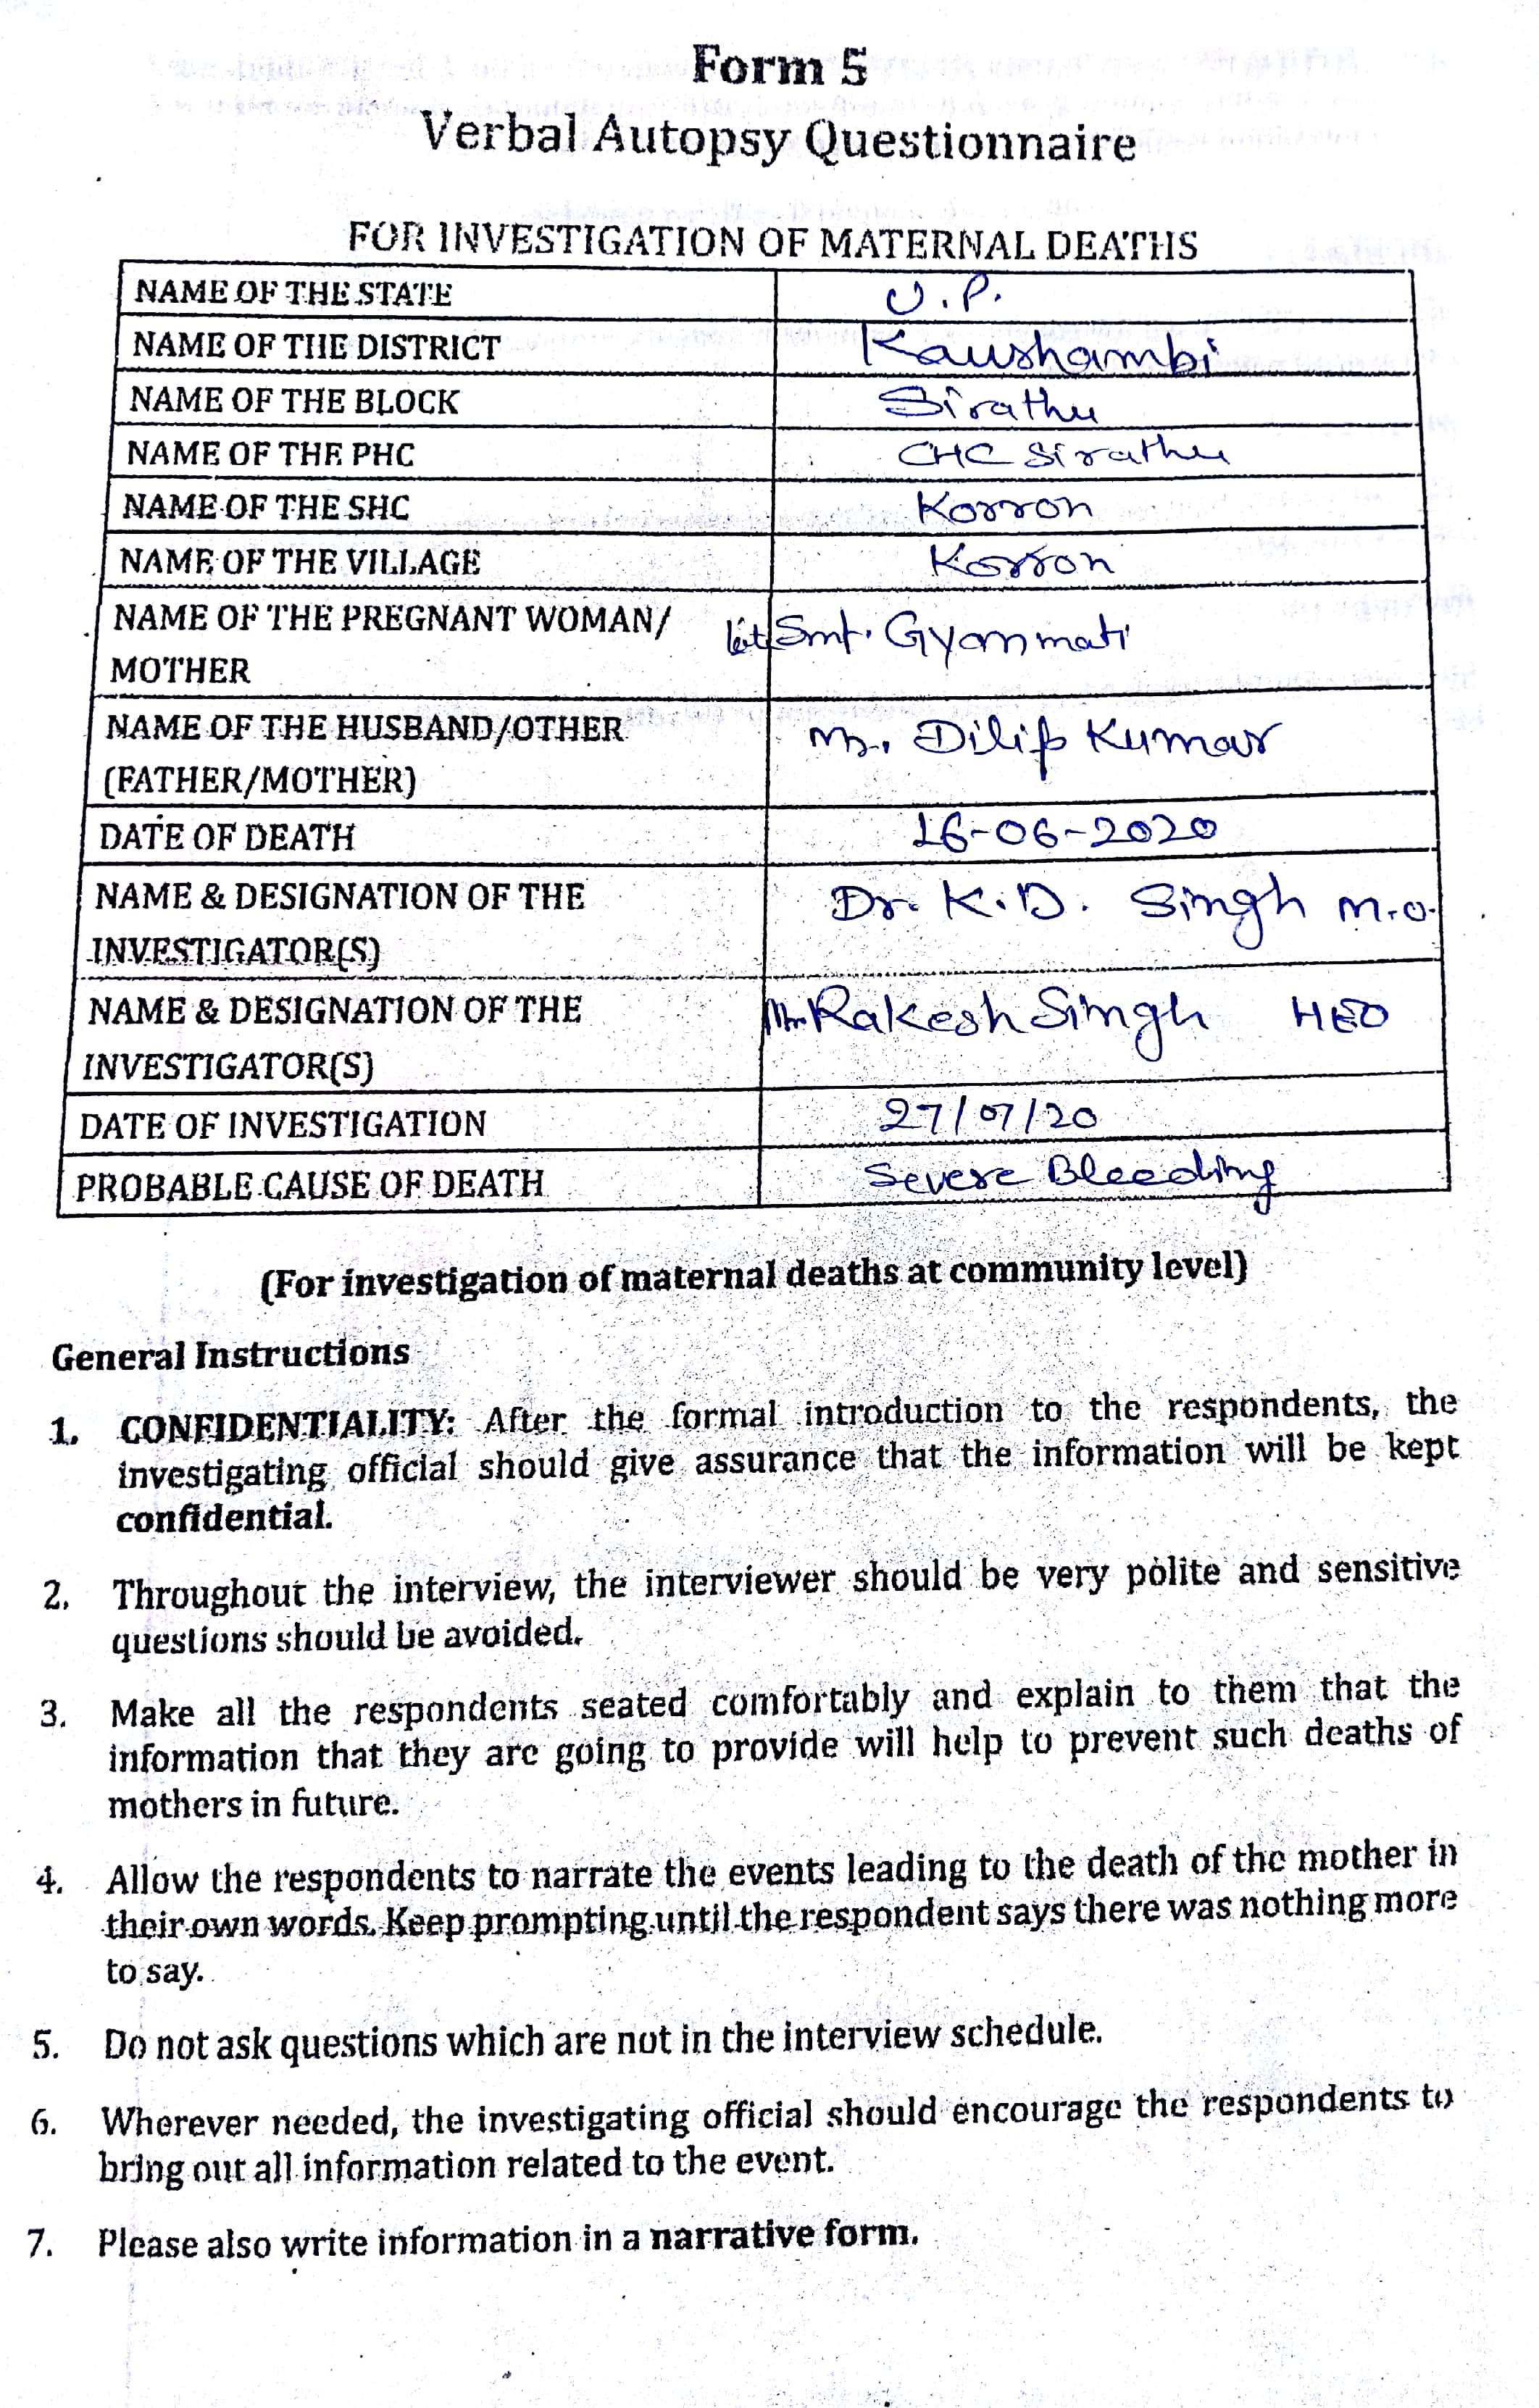 Form 5
Verbal Autopsy Questionnaire
FOR INVESTIGATION OF MATERNAL DEATHS
NAME OF THE STATE U.P.
NAME OF THE DISTRICT Kaushambi
NAME OF THE BLOCK Sirathu
NAME OF THE PHC CHC Sirathu
NAME OF THE SHC Korron
NAME OF THE VILLAGE Korron
NAME OF THE PREGNANT WOMAN/ Smt. Gyanmati
MOTHER
NAME OF THE HUSBAND/OTHER Dilip Kumar
(FATHER/MOTHER)
DATE OF DEATH 16-06-2020
NAME & DESIGNATION OF THE Dr. K.D. Singh M.O.
INVESTIGATOR(S)
NAME & DESIGNATION OF THE Mr Rakesh Singh HEO
INVESTIGATOR(S)
DATE OF INVESTIGATION 27/07/20
PROBABLE CAUSE OF DEATH Severe Bleeding
(For investigation of maternal deaths at community level)
General Instructions
1. CONFIDENTIALITY: After the formal introduction to the respondents, the
investigating official should give assurance that the information will be kept
confidential.
2. Throughout the interview, the interviewer should be very polite and sensitive
questions should be avoided.
3. Make all the respondents seated comfortably and explain to them that the
information that they are going to provide will help to prevent such deaths of
mothers in future.
4. Allow the respondents to narrate the events leading to the death of the mother in
their own words. Keep prompting until the respondent says there was nothing more
to say.
5. Do not ask questions which are not in the interview schedule.
6. Wherever needed, the investigating official should encourage the respondents to
bring out all information related to the event.
7. Please also write information in a narrative form.